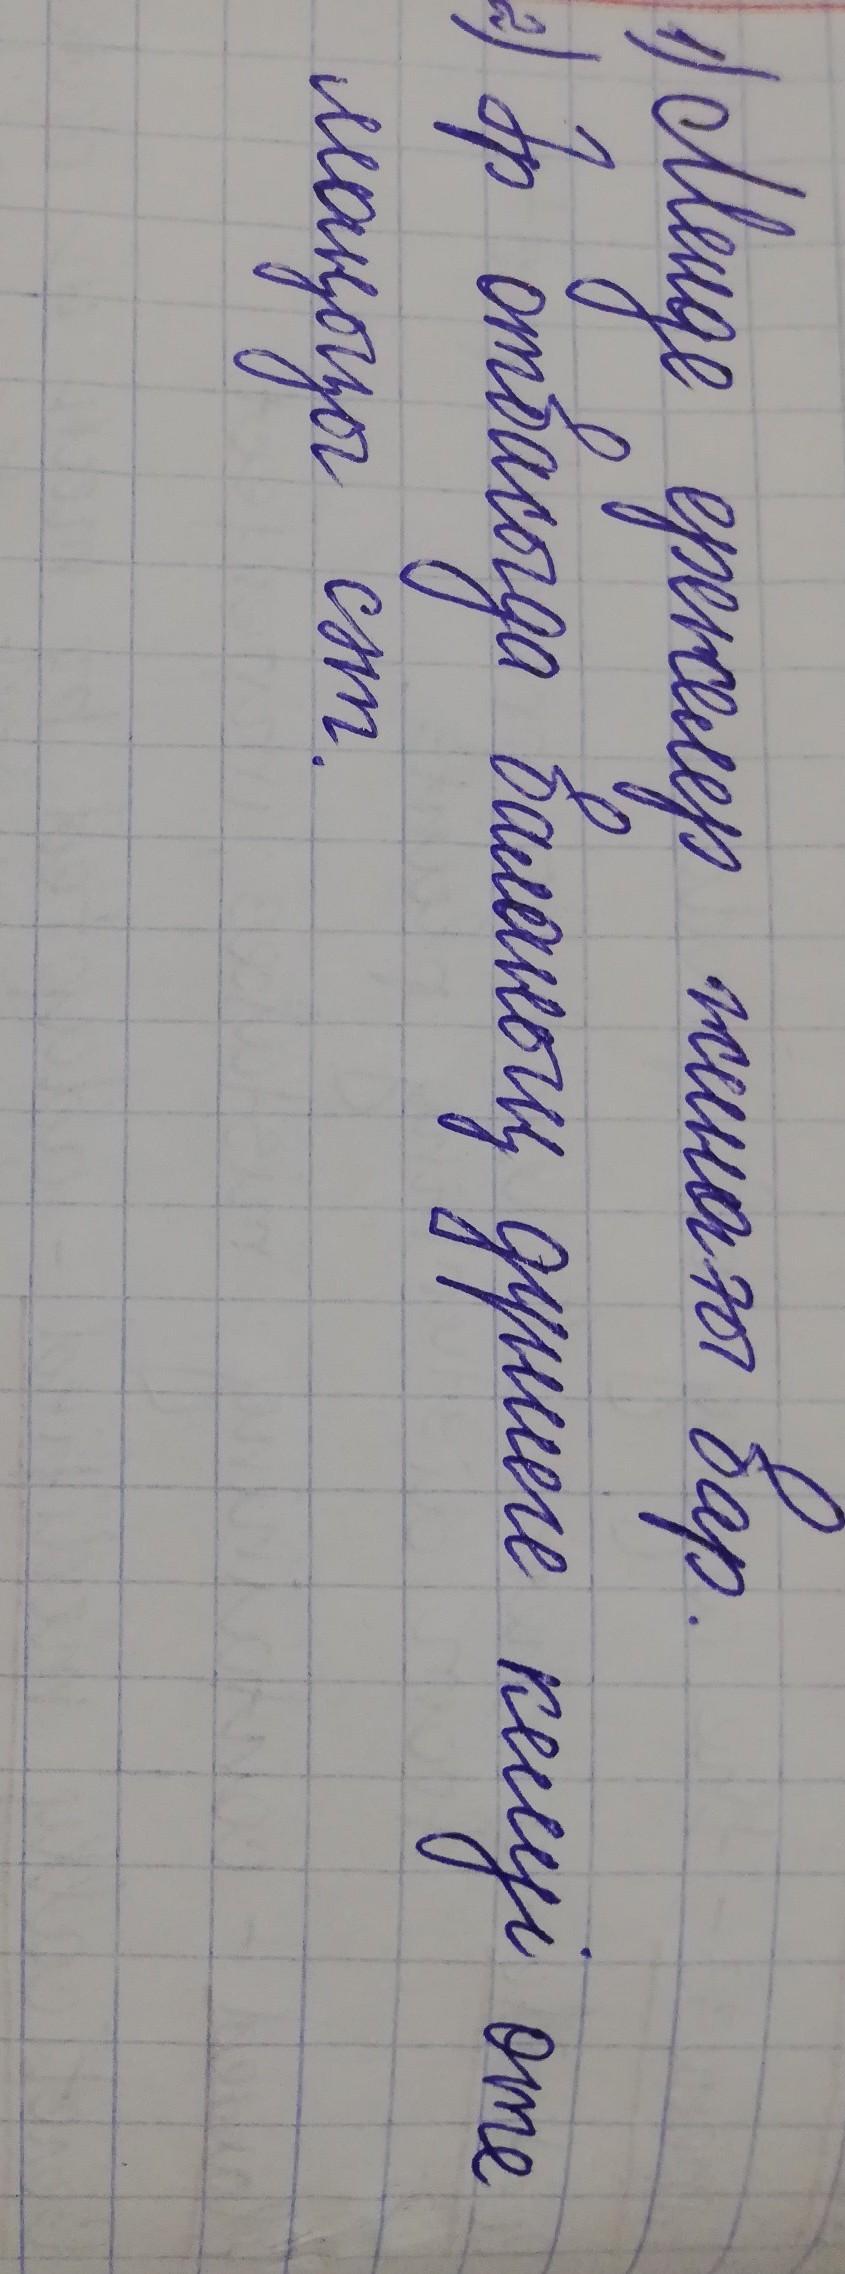 1) Менде ережелер жинағы бар.
2) Әр отбасыда баланың дүниеге келуі өте
маңызды сәт.